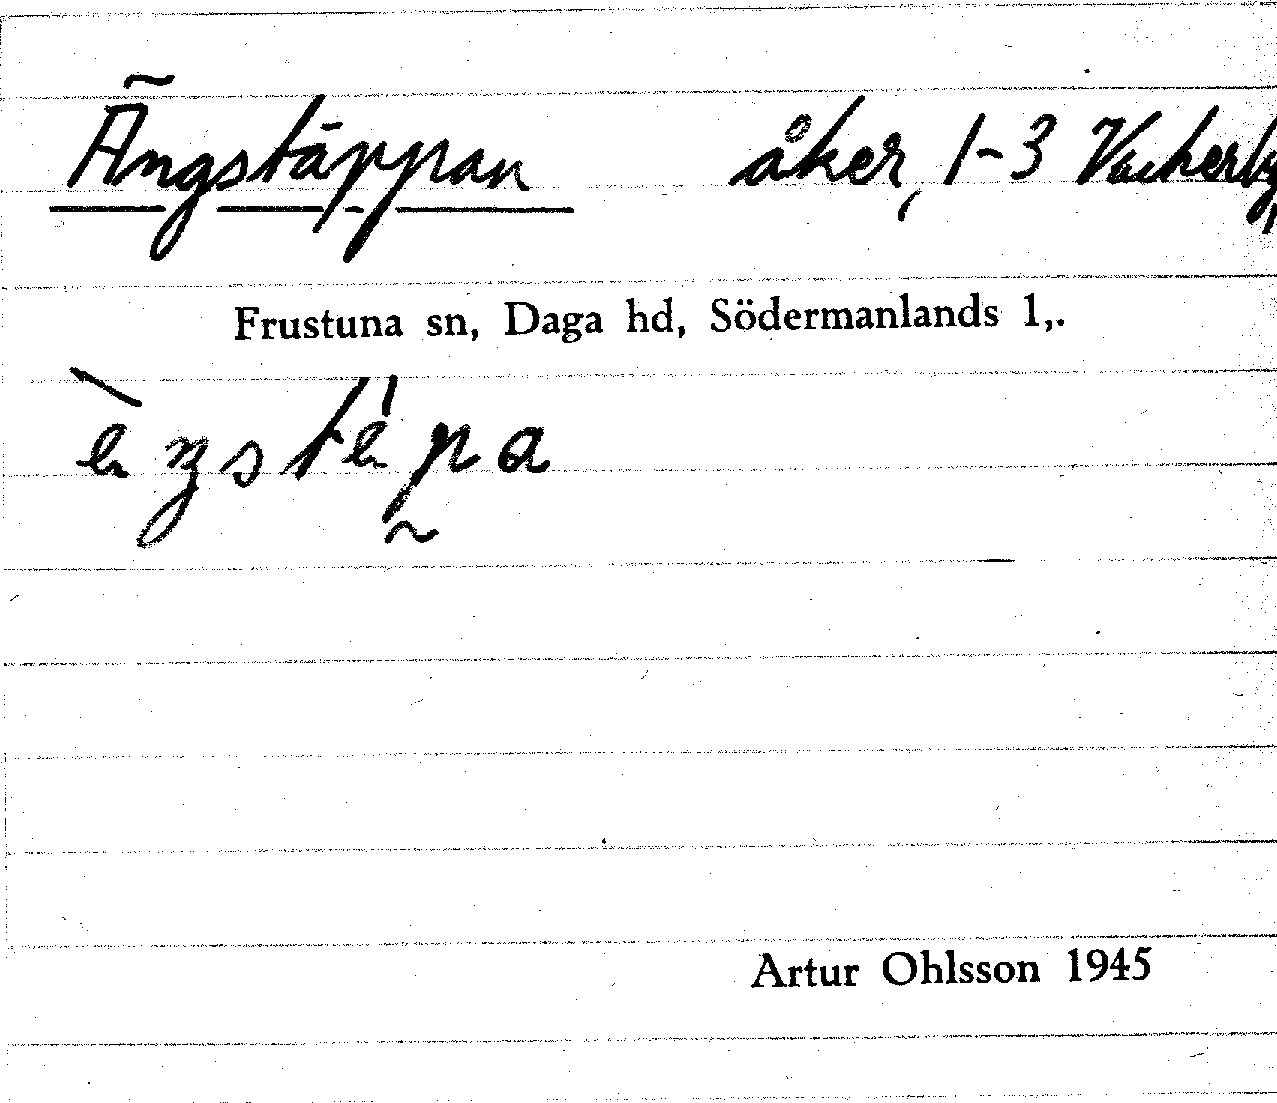 Ängstäppan åker, 1-3 Vackerby,
Frustuna sn, Daga hd, Södermanlands l,.
è ŋ s t é p a
Artur Ohlsson 1945